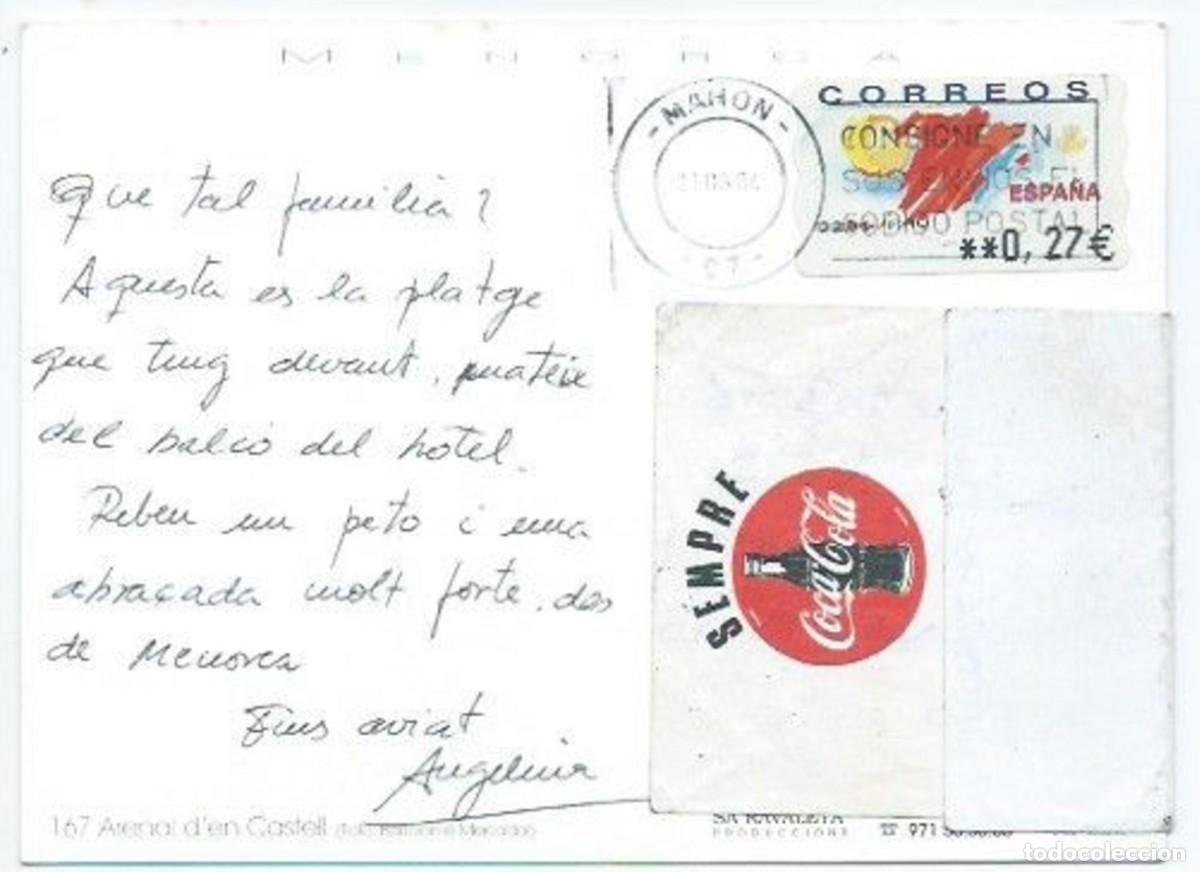 MENORCA
- MAHON -
CORREOS
CONSIGNE EN
SUS ENVIOS EL
CODIGO POSTAL
ESPAÑA
**0,27€
Que tal familia?
Aquesta es la platge
que ting devant, mateix
del balco del hotel.
Reben un peto i una
abraçada molt forte, des
de Menorca
Fins aviat
Angelina
SEMPRE
Coca-Cola
167 Arenal d'en Castell
SA RAVALETA
PRODUCCIONS
☎ 971
todocoleccion